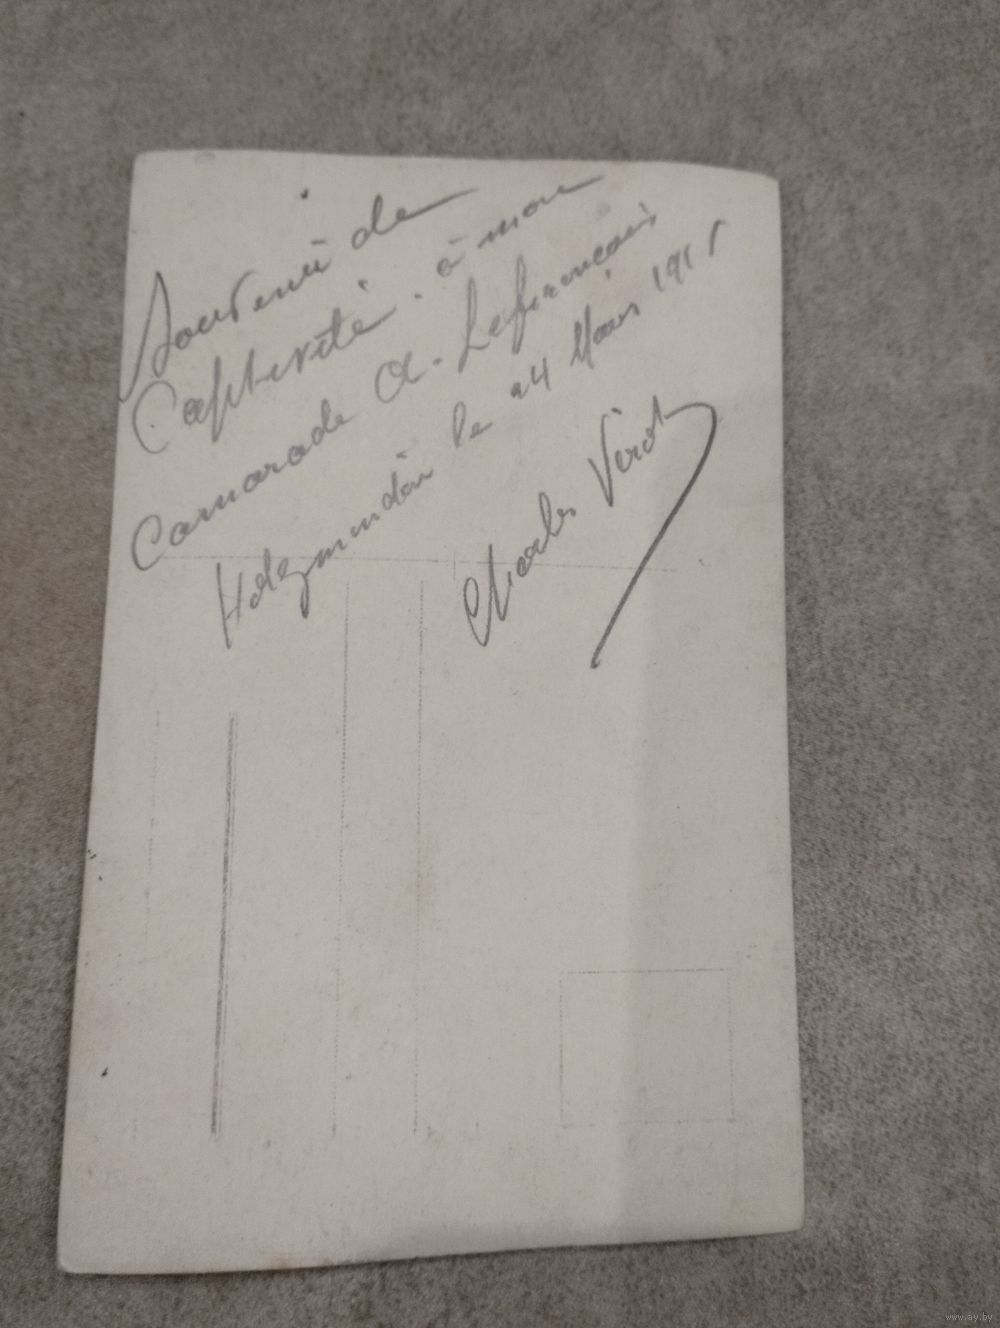 Souvenir de
Captivité. à mon
Camarade A. Lefrancois
Holzminden le 24 Mars 1915
Charles Virot
www.ay.by